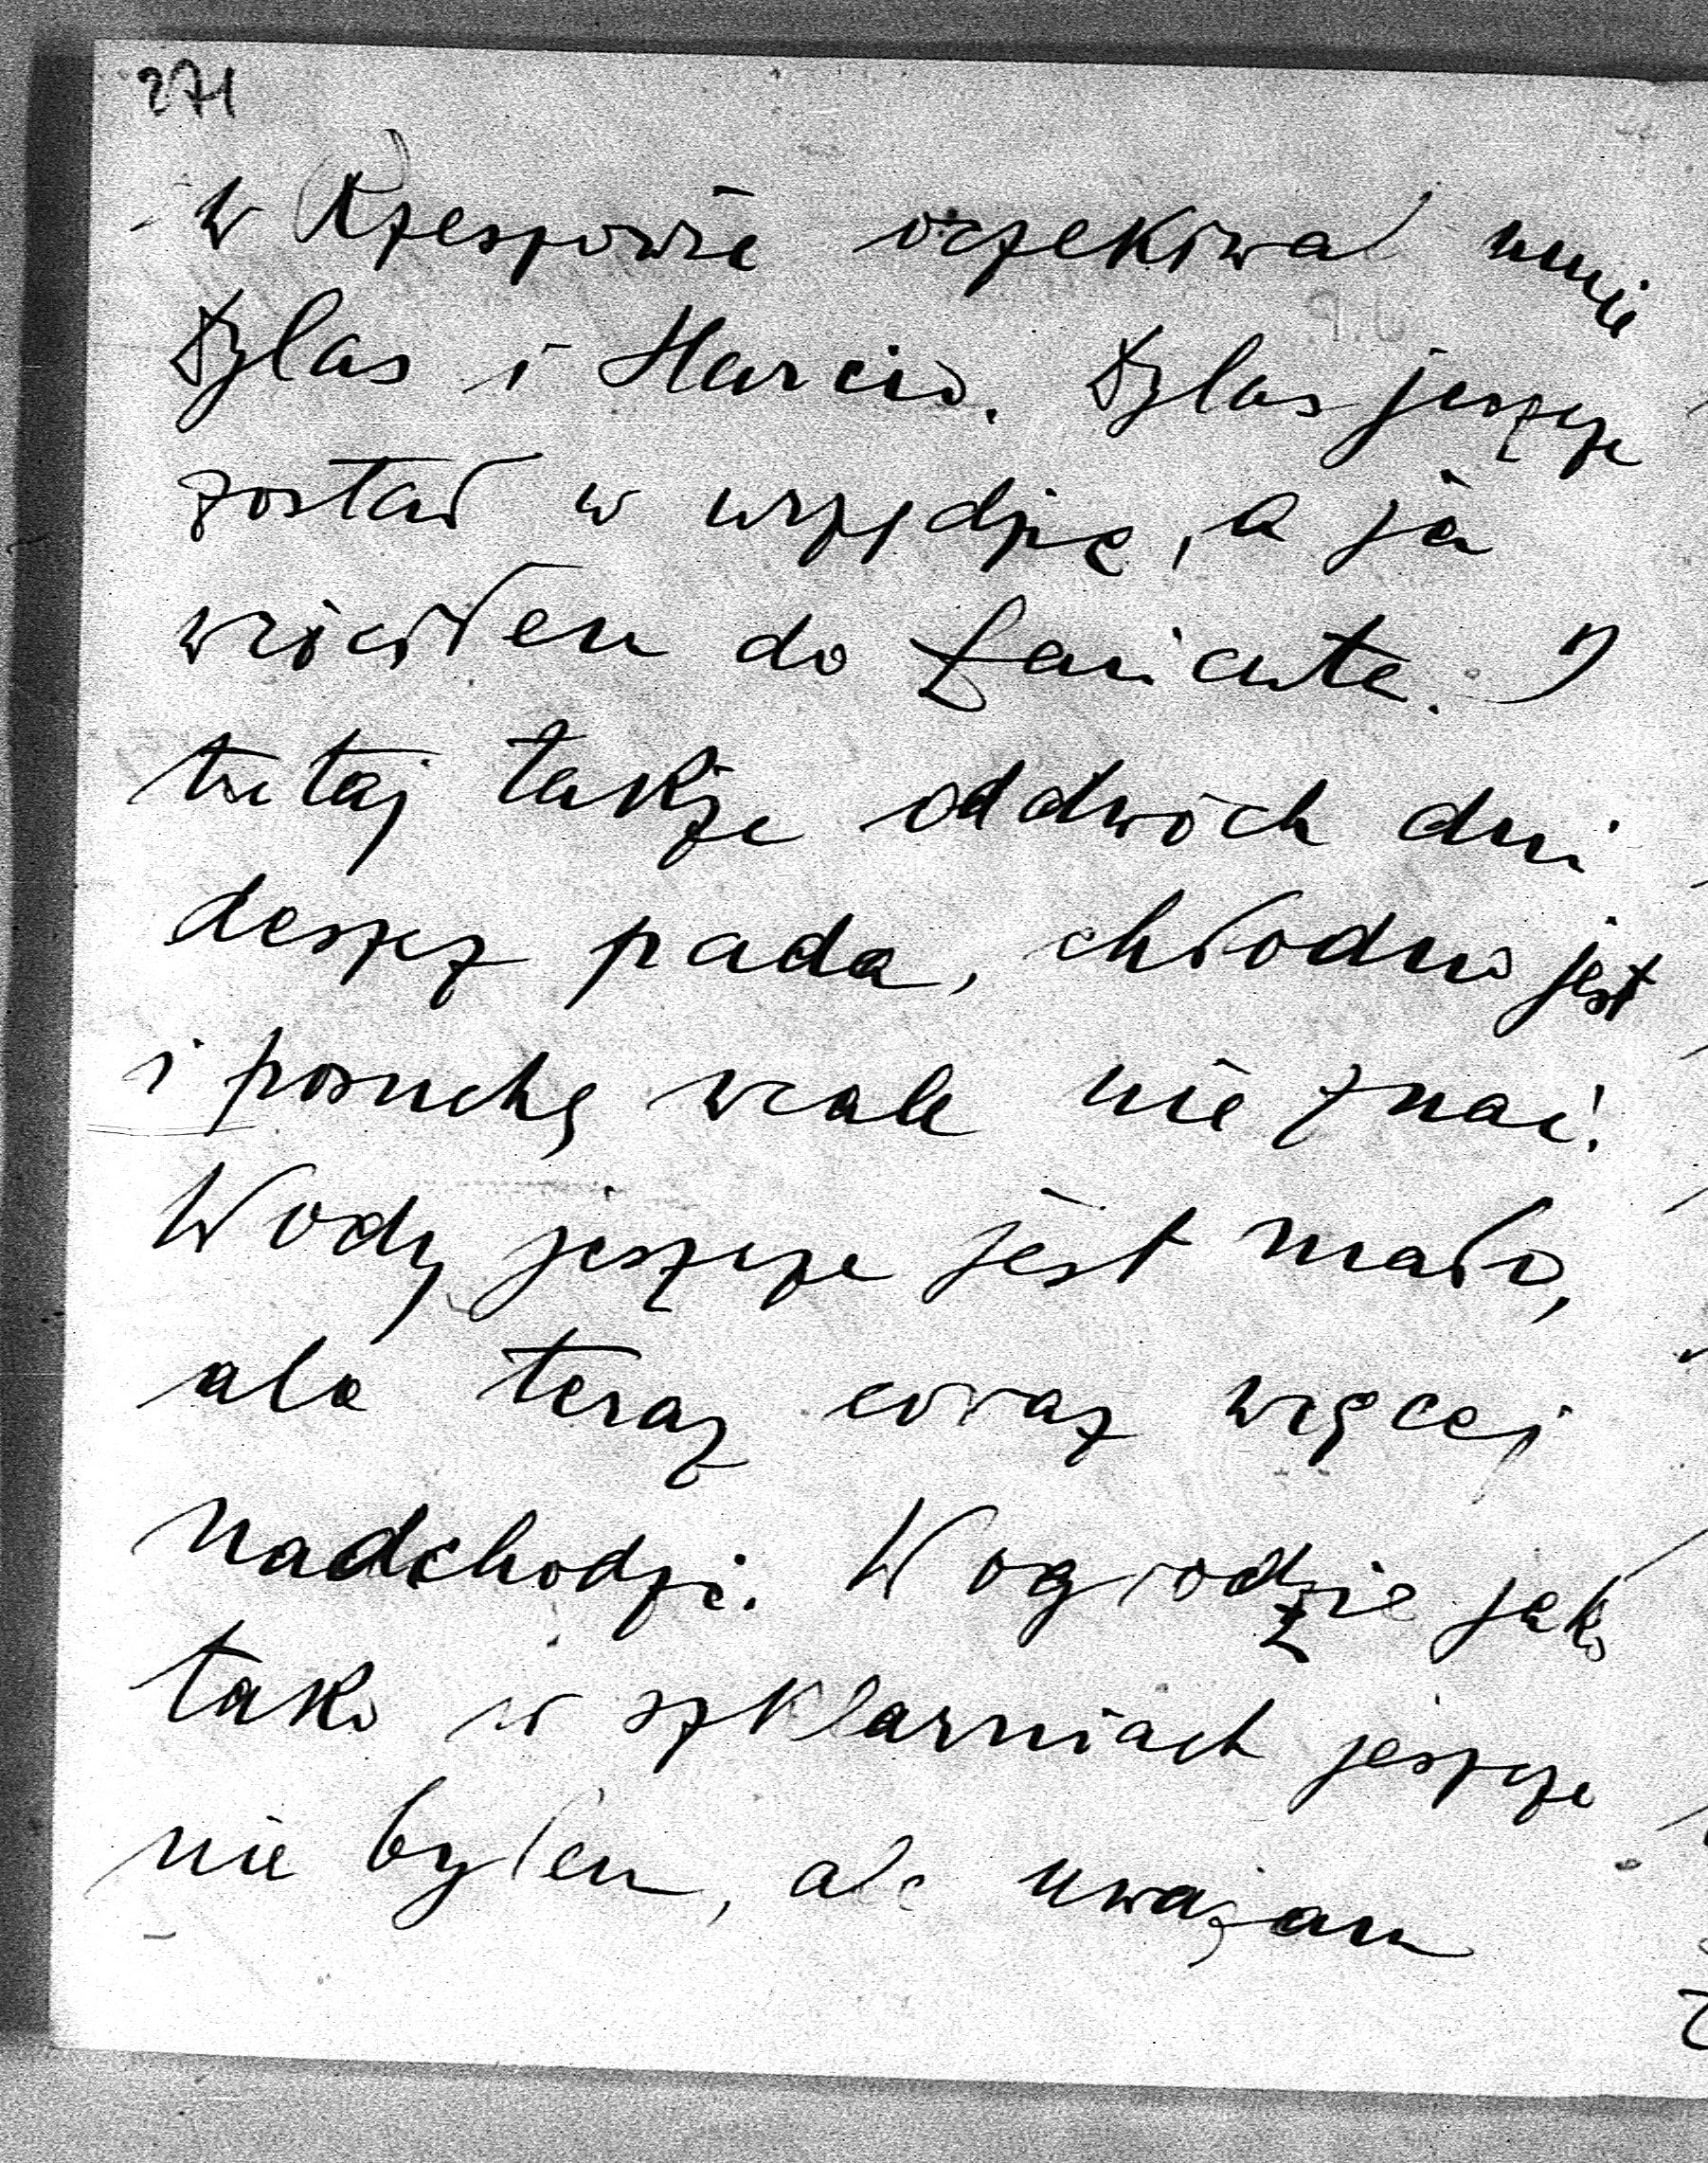 271
w Rzeszowie oczekiwał mnie
Dylas i Marcin. Dylas jeszcze
został w urzędzie, a ja
wróciłem do Łańcuta. I
tutaj także od dwóch dni
deszcz pada, chłodno jest
i posuchę wcale nie znać!
Wody jeszcze jest mało,
ale teraz coraz więcej
nadchodzi. W ogrodzie jako
tako w szklarniach jeszcze
nie byłem, ale uważam